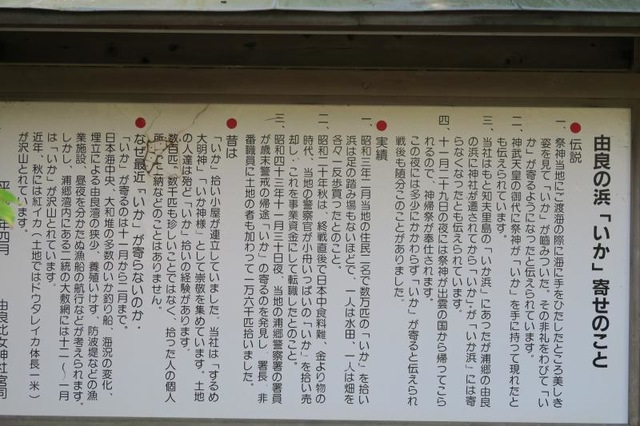 由良の浜「いか」寄せのこと
●伝説
一、祭神当地にご渡海の際に海に手をひたしたところ美しき
姿を見て「いか」が噛みついた。その非礼をわびて「い
か」が寄るようになったと伝えられています。
二、神武天皇の御代に祭神が「いか」を手に持って現れたと
も伝えられています。
三、当社はもと知夫里島の「いか浜」にあったが浦郷の由良
の浜に神社が遷されてから「いか」が「いか浜」には寄
らなくなったとも伝えられています。
四、十一月二十九日の夜には祭神が出雲の国から帰ってこら
れるので、神帰祭が奉仕されます。
この夜には多少にかかわらず「いか」が寄ると伝えられ
戦後も随分このことがありました。
●実績
一、昭和三年二月当地の住民二名で数万匹の「いか」を拾い
浜は足の踏み場もないほどで、一人は水田、一人は畑を
各々一反歩買ったとのこと。
二、昭和二十年秋は、終戦直後で日本中食料難、金より物の
時代、当地の警察官が小舟いっぱいの「いか」を拾い売
却し、これを事業資金にして転職したとのこと。
三、昭和四十三年十一月三十日夜、当地の浦郷警察署の署員
が歳末警戒の帰途「いか」の寄るのを発見し、署長、非
番職員に土地の者も加わって一万六千匹拾いました。
●昔は
「いか」拾い小屋が連立していました。当社は「するめ
大明神」「いか神様」として崇敬を集めています。土地
の人達は殆ど「いか」拾いの経験があります。
数百匹、数千匹も珍しいことではなく、拾った人の個人
所 に などのことはありません。
●なぜ最近「いか」が寄らないのか。
「いか」が寄るのは十一月から二月まで。
日本海中央、大和堆の多数のいか釣り船、海況の変化、
埋立による由良湾の狭少、養殖いけす、防波堤などの漁
業施設、昼夜を分かたぬ漁船の航行などが考えられます。
しかし、浦郷湾内にある二統の大敷網には十二〜一月
は「いか」が沢山とれています。
近年、秋には紅イカ(土地ではドウタレイカ体長一米)
が沢山とれています。
平 年四月 由良比女神社宮司